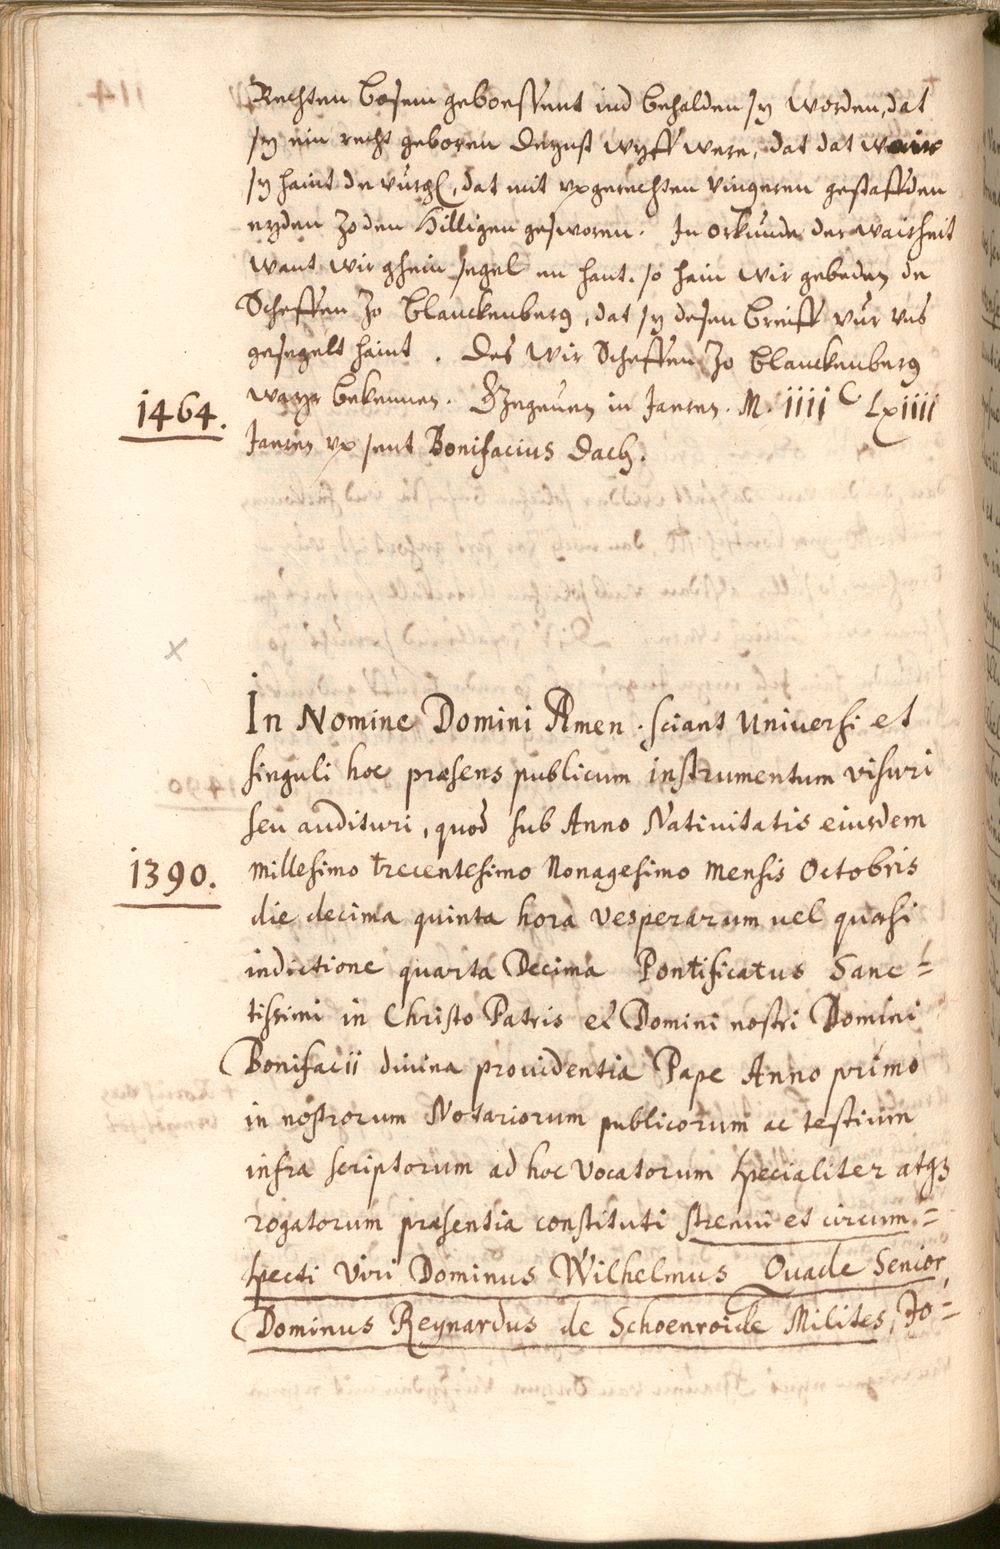 Rechten bosem geboessent ind behalden sy worden, dat
sy ein recht geboren dienst wyff were, dat dat wair
sy haint de vurgl, dat mit upgerechten vingeren gestaffden
eyden zo den Hilligen gesworen. In orkunde der wairheit
want wir ghein segel en hant. so hain wir gebeden de
Scheffen zo Blanckenberg, dat sy desen breiff vur uns
gesegelt haint. Des wir Scheffen zo Blanckenberg
wayr bekennen. Gegeven in Jaeren. M. iiii C Lxiiii
1464.
Jaeren up sent Bonifacius dach.
In Nomine Domini Amen. sciant Universi et
singuli hoc præsens publicum instrumentum visuri
seu audituri, quod sub Anno Nativitatis eiusdem
1390.
millesimo trecentesimo Nonagesimo mensis Octobris
die decima quinta hora vesperarum uel quasi
indictione quarta Decima Pontificatus Sanc=
tissimi in Christo Patris et Domini nostri Domini
Bonifacii divina providentia Pape Anno primo
in nostrorum Notariorum publicorum ac testium
infra scriptorum ad hoc vocatorum specialiter atq3
rogatorum præsentia constituti strenui et circum=
specti Viri Dominus Wilhelmus Quade Senior,
Dominus Reynardus de Schoenroide Milites, Jo=